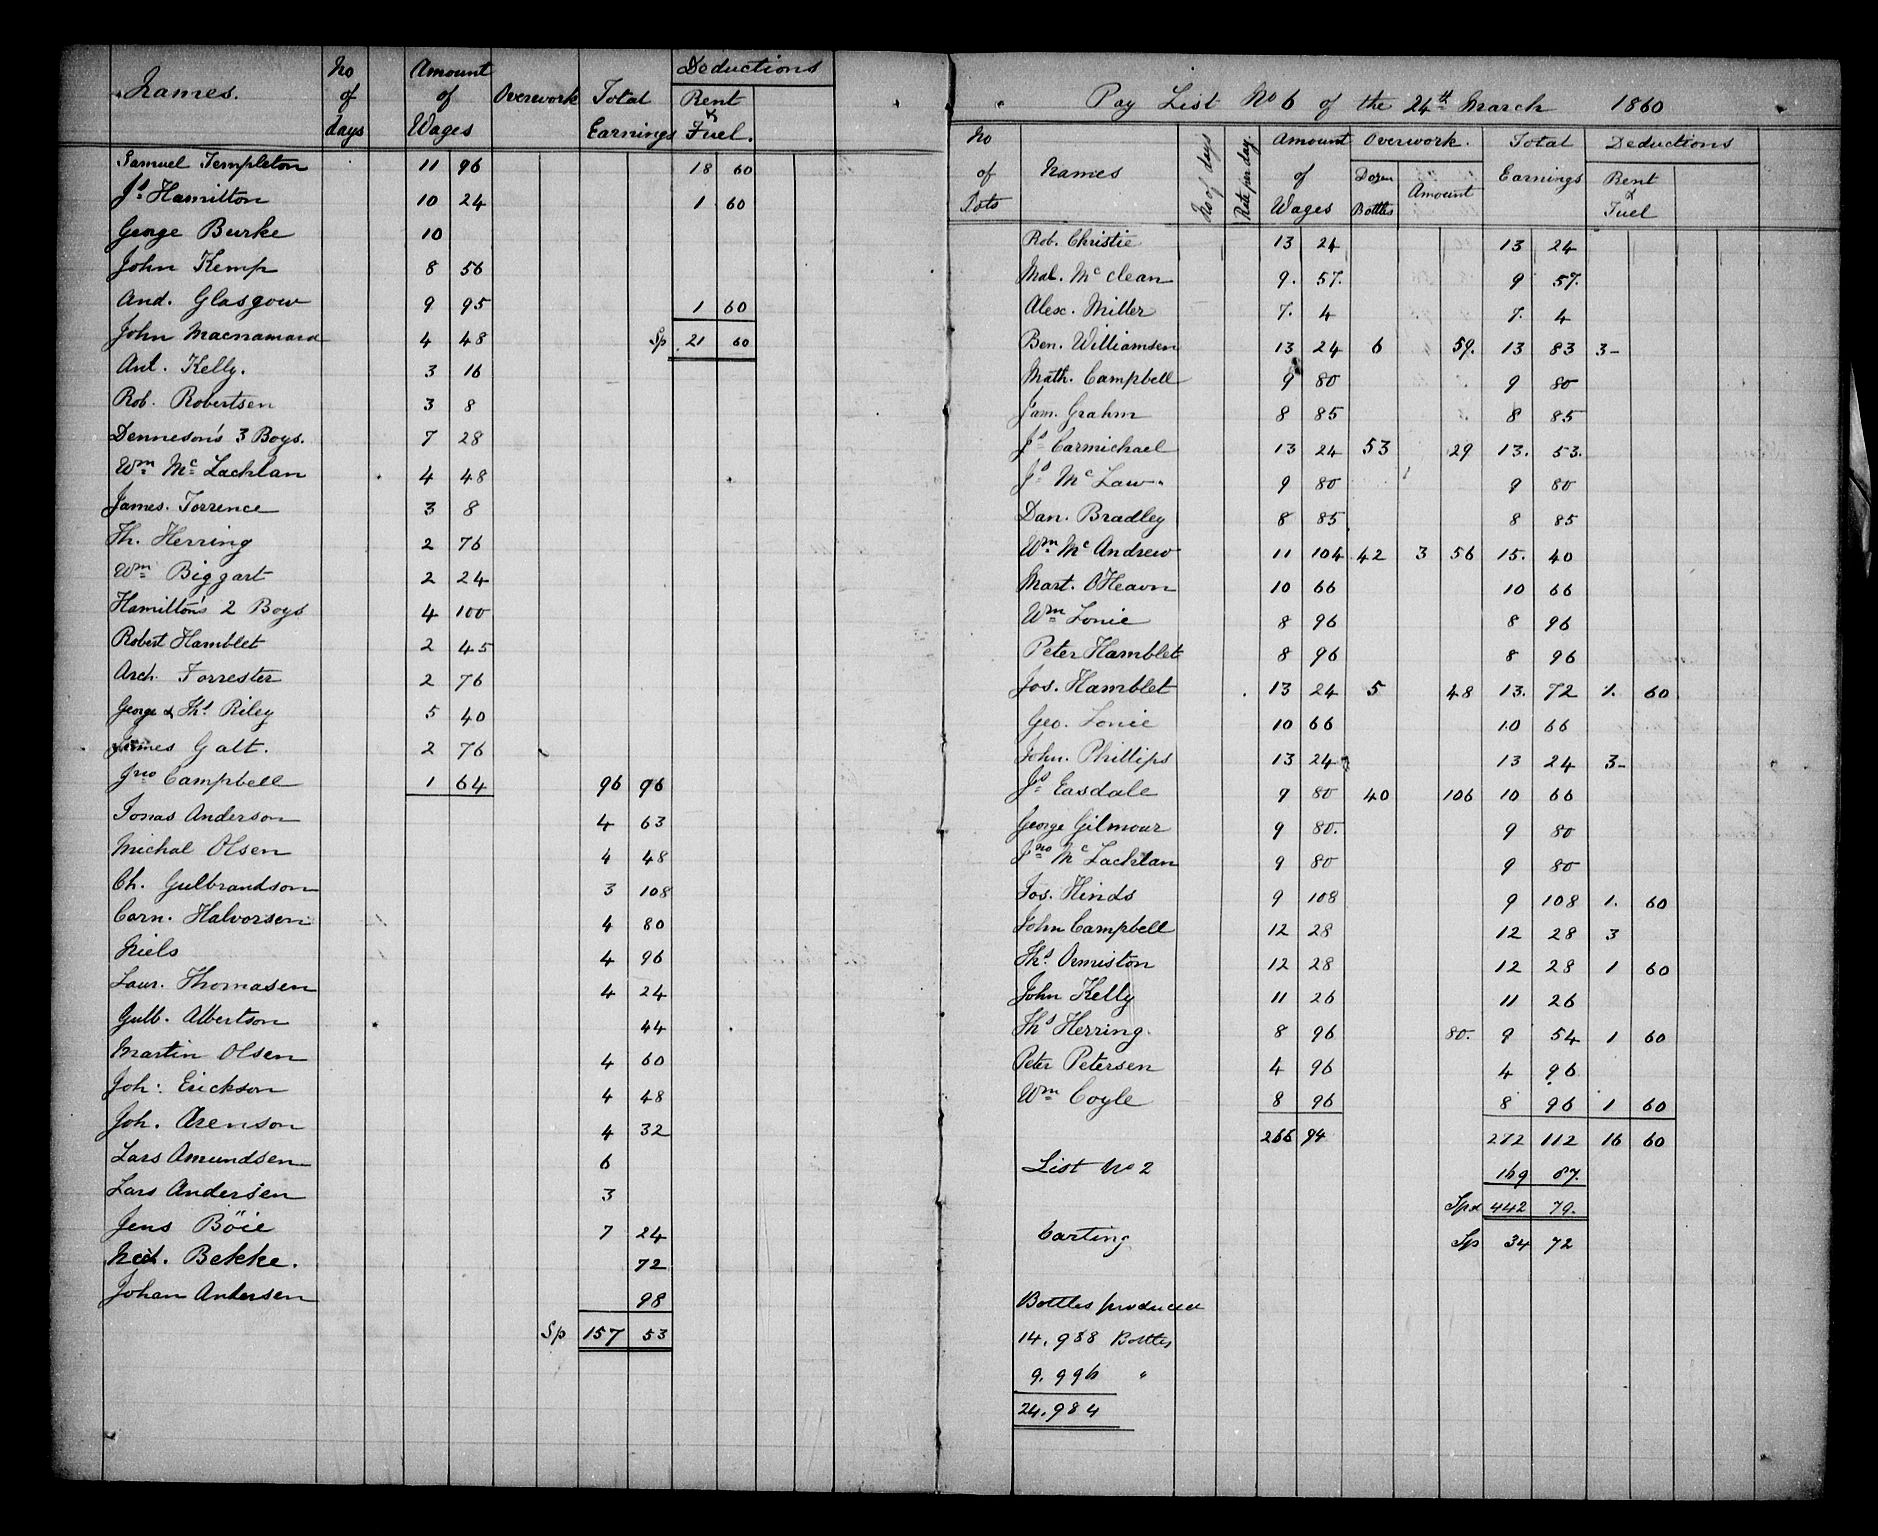 Names. No of days Amount of Wages Overwork Total Earnings Deductions Rent & Fuel.
Samuel Templeton 11 96 18 60
Js Hamilton 10 24 1 60
George Burke 10
John Kemp 8 56
And. Glasgow 9 95 1 60
John Macnamara 4 48 Sp 21 60
Ant. Kelly. 3 16
Rob. Robertsen 3 8
Denneson's 3 Boys. 7 28
Wm Mc Lachlan 4 48
James. Torrence 3 8
Th. Herring 2 76
Wm Biggart 2 24
Hamilton's 2 Boys 4 100
Robert Hamblet 2 45
Arch. Forrester 2 76
George & Ths Riley 5 40
James Galt. 2 76
Jno Campbell 1 64 96 96
Jonas Anderson 4 63
Michal Olsen 4 48
Ch. Gulbrandson 3 108
Corn. Halvorsen 4 80
Niels 4 96
Laur. Thomasen 4 24
Gulb. Albertson 44
Martin Olsen 4 60
Joh: Erickson 4 48
Joh. Arenson 4 32
Lars Amundsen 6
Lars Andersen 3
Jens Böie 7 24
Bekke. 72
Johan Andersen 98
Sp 157 53
Pay List No 6 of the 24th March 1860
No of Pots Names No of days Rate per day. Amount of Wages Overwork. Dozen Bottles Amount Total Earnings Deductions Rent & Fuel
Rob. Christie 13 24 13 24
Mal. Mc Clean 9. 57. 9 57.
Alex. Miller 7. 4 7. 4
Ben. Williamsen 13 24 6 59. 13 83 3-
Math. Campbell 9 80 9 80
Jam. Grahm 8 85 8 85
Js Carmichael 13 24 53 29 13. 53.
Js Mc Law. 9 80 9 80
Dan. Bradley 8 85 8 85
Wm Mc Andrew 11 104 42 3 56 15. 40
Mart. O'Heavn 10 66 10 66
Wm Lonie 8 96 8 96
Peter Hamblet 8 96 8 96
Jos. Hamblet 13 24 5 48 13. 72 1. 60
Geo. Lonie 10 66 10 66
John. Phillips 13 24 13 24 3-
Js Easdale 9 80 40 106 10 66
George Gilmour 9 80. 9 80
Jno Mc Lachlan 9 80 9 80
Jos. Hinds 9 108 9 108 1. 60
John Campbell 12 28 12 28 3
Ths Ormiston 12 28 12 28 1 60
John Kelly 11 26 11 26
Ths Herring. 8 96 80. 9 54 1 60
Peter Petersen 4 96 4 96
Wm Coyle 8 96 8 96 1 60
266 94 272 112 16 60
List No 2 169 87.
Spd 442 79.
Carting Sp 34 72
Bottles produced
14.988 Bottles
9.996 "
24.984